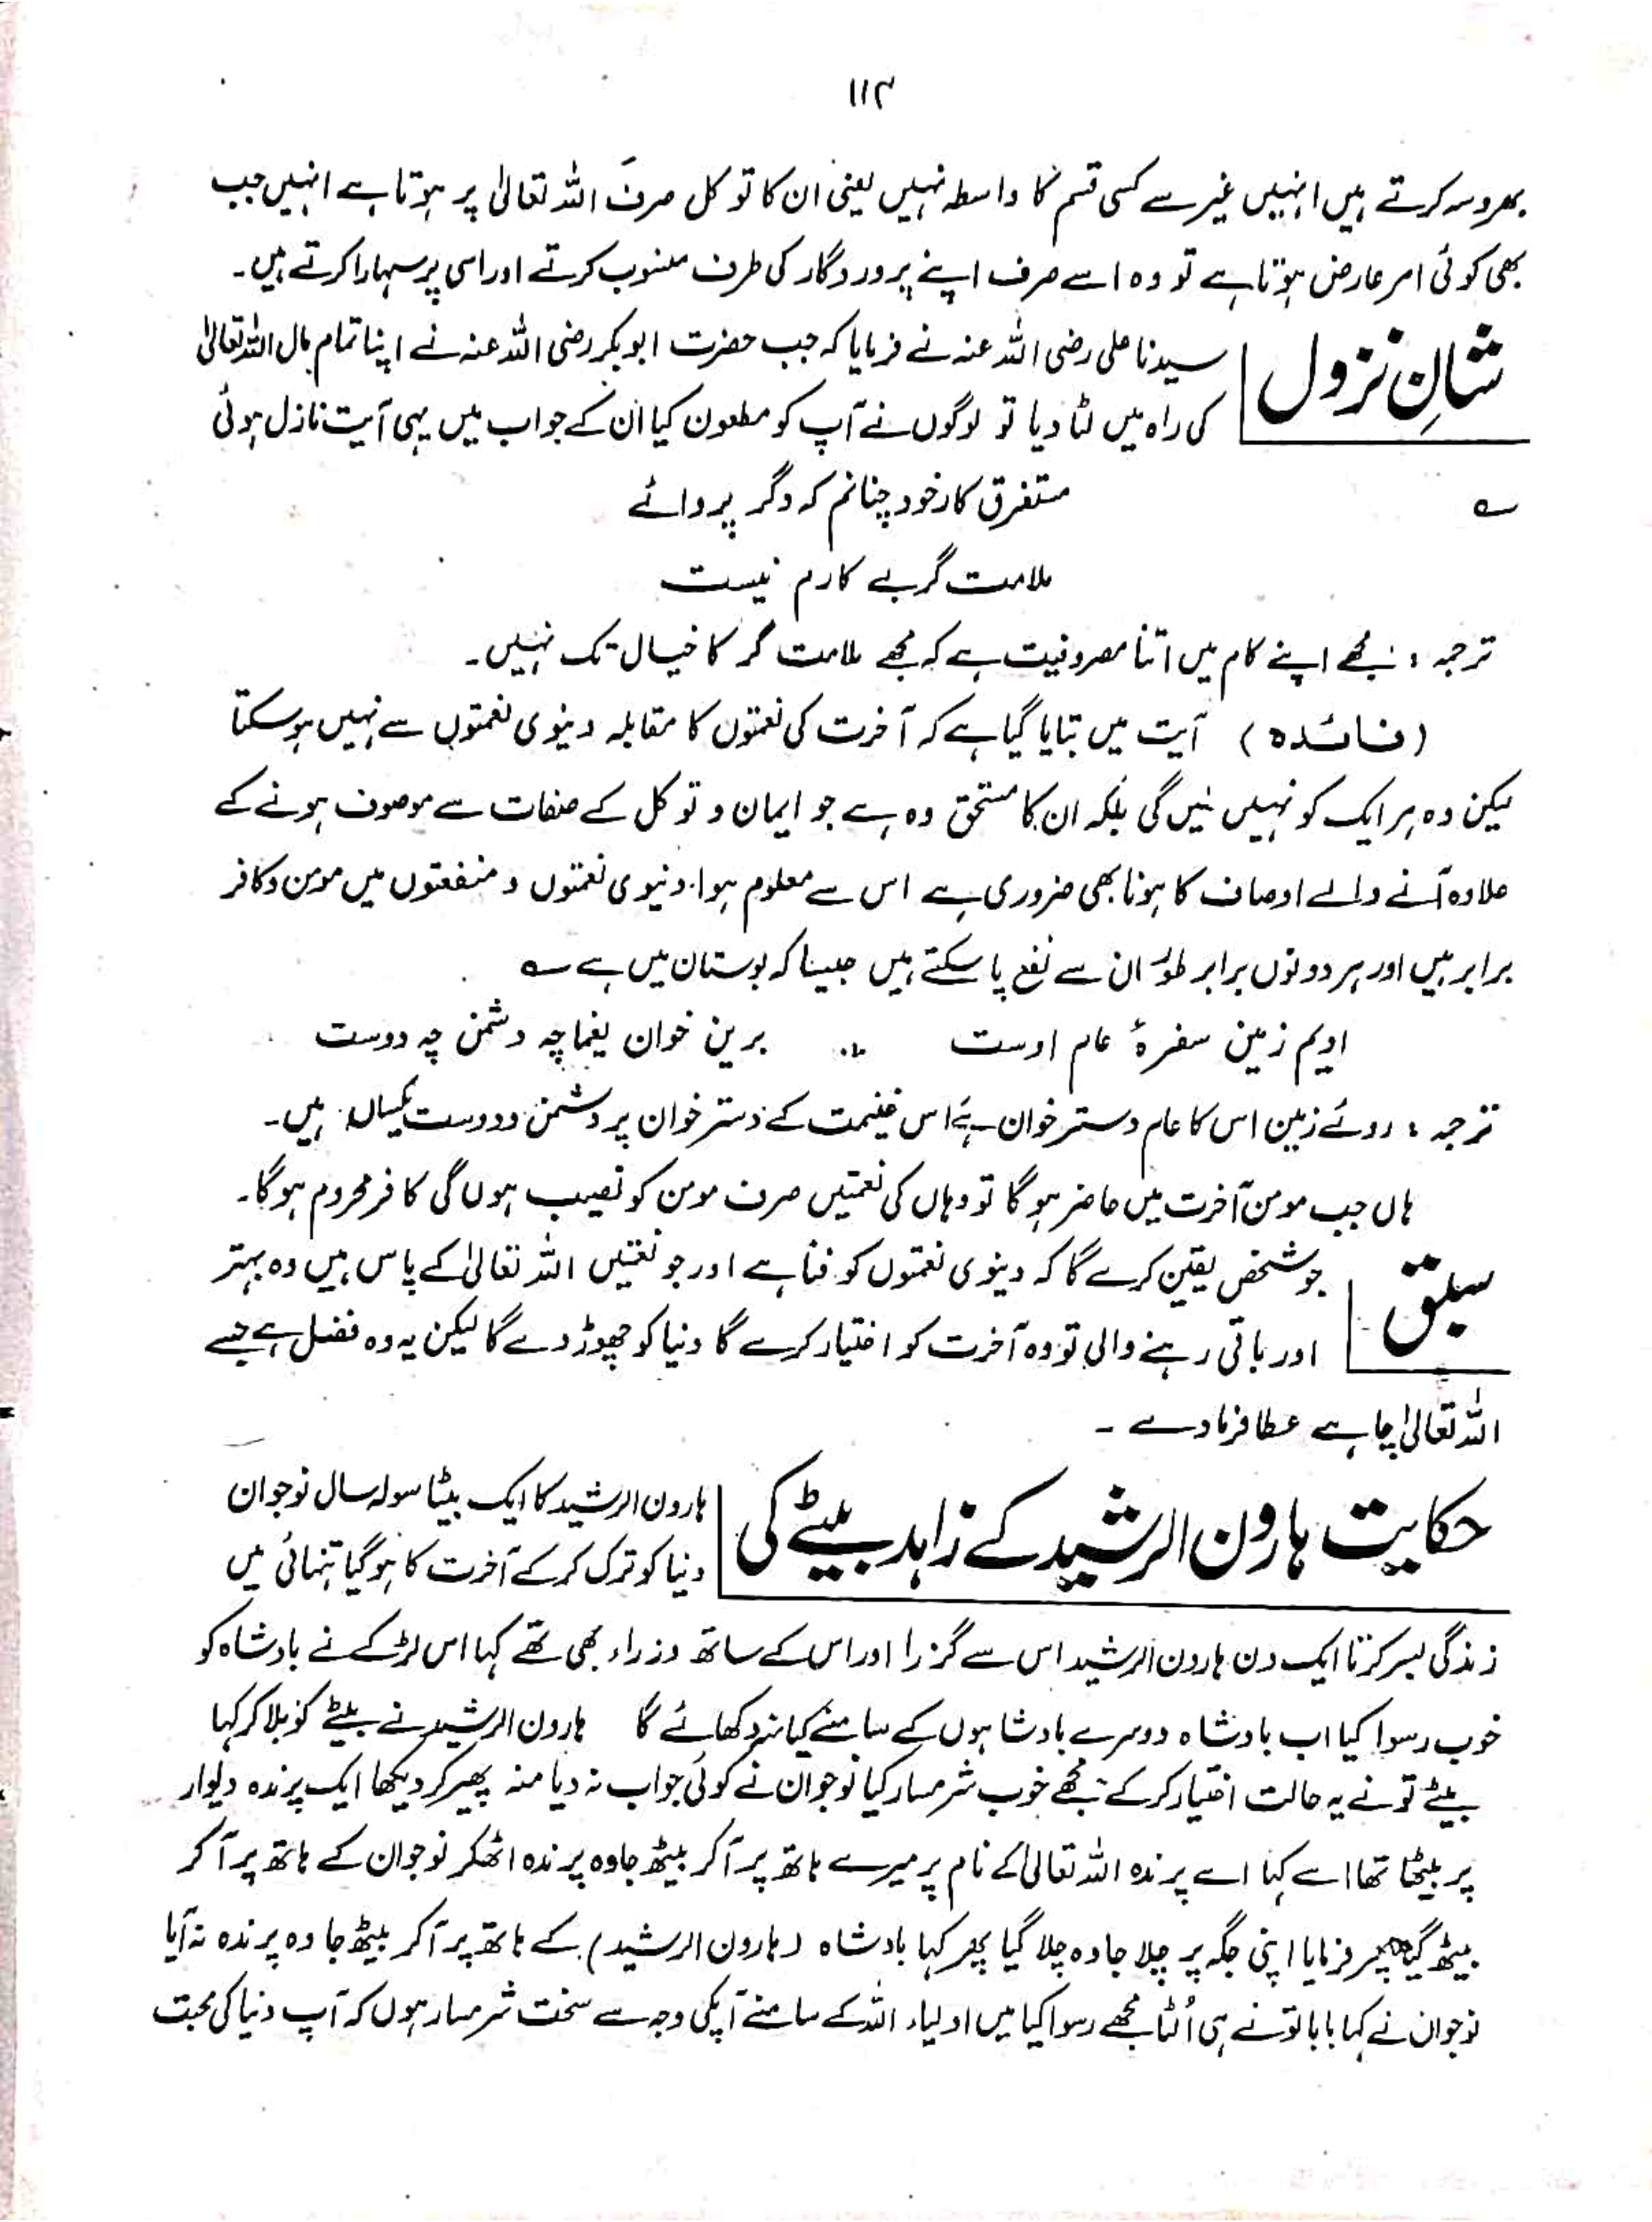 ۱۱۴
بھروسہ کرتے ہیں انہیں غیر سے کسی قسم کا واسطہ نہیں یعنی ان کا توکل صرف اللہ تعالیٰ پر ہوتا ہے انہیں جب
بھی کوئی امر عارض ہوتا ہے تو وہ اسے صرف اپنے پروردگار کی طرف منسوب کرتے اور اسی پر سہارا کرتے ہیں۔
شانِ نزول سیدنا علی رضی اللہ عنہ نے فرمایا کہ جب حضرت ابوبکر رضی اللہ عنہ نے اپنا تمام مال اللہ تعالیٰ
کی راہ میں لٹا دیا تو لوگوں نے آپ کو مطعون کیا ان کے جواب میں یہی آیت نازل ہوئی
؎ مستغرق کار خود چنانم کہ دگر پروائے
ملامت گر بے کارم نیست
ترجمہ : مجھے اپنے کام میں اتنا مصروفیت ہے کہ مجھے ملامت گر کا خیال تک نہیں۔
(فائدہ) آیت میں بتایا گیا ہے کہ آخرت کی نعمتوں کا مقابلہ دینوی نعمتوں سے نہیں ہو سکتا
لیکن وہ ہر ایک کو نہیں ملیں گی بلکہ ان کا مستحق وہ ہے جو ایمان و توکل کے صفات سے موصوف ہونے کے
علاوہ آنے والے اوصاف کا ہونا بھی ضروری ہے اس سے معلوم ہوا۔ دنیوی نعمتوں و منفعتوں میں مومن و کافر
برابر ہیں اور ہر دونوں برابر طور ان سے نفع پا سکتے ہیں جیسا کہ بوستان میں ہے ؎
ادیم زمین سفرۂ عام اوست ∴ برین خوان یغما چہ دشمن چہ دوست
ترجمہ : روئے زمین اس کا عام دسترخوان ہے اس غنیمت کے دسترخوان پر دشمن و دوست یکساں ہیں۔
ہاں جب مومن آخرت میں حاضر ہو گا تو وہاں کی نعمتیں صرف مومن کو نصیب ہوں گی کافر محروم ہوگا۔
سبق جو شخص یقین کرے گا کہ دینوی نعمتوں کو فنا ہے اور جو نعمتیں اللہ تعالیٰ کے پاس ہیں وہ بہتر
اور باقی رہنے والی تو وہ آخرت کو اختیار کرے گا دنیا کو چھوڑ دے گا لیکن یہ وہ فضل ہے جسے
اللہ تعالیٰ چاہے عطا فرما دے ۔
حکایت ہارون الرشید کے زاہد بیٹے کی ہارون الرشید کا ایک بیٹا سولہ سال نوجوان
دنیا کو ترک کر کے آخرت کا ہو گیا تنہائی میں
زندگی بسر کرتا ایک دن ہارون الرشید اس سے گزرا اور اس کے ساتھ وزراء بھی تھے کہا اس لڑکے نے بادشاہ کو
خوب رسوا کیا اب بادشاہ دوسرے بادشاہوں کے سامنے کیا منہ دکھائے گا ہارون الرشید نے بیٹے کو بلا کر کہا
بیٹے تو نے یہ حالت اختیار کر کے مجھے خوب شرمسار کیا نوجوان نے کوئی جواب نہ دیا منہ پھیر کر دیکھا ایک پرندہ دیوار
پر بیٹھا تھا اسے کہا اے پرندہ اللہ تعالیٰ کے نام پر میرے ہاتھ پر آ کر بیٹھ جا وہ پرندہ اٹھکر نوجوان کے ہاتھ پر آ کر
بیٹھ گیا پھر فرمایا اپنی جگہ پر چلا جا وہ چلا گیا پھر کہا بادشاہ (ہارون الرشید) کے ہاتھ پر آ کر بیٹھ جا وہ پرندہ نہ آیا
نوجوان نے کہا بابا تو نے ہی اُلٹا مجھے رسوا کیا میں اولیاء اللہ کے سامنے آپکی وجہ سے سخت شرمسار ہوں کہ آپ دنیا کی محبت